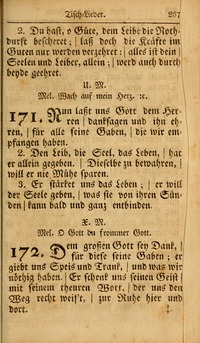 Tisch-Lieder. 287
2. Du hast, o Güte, dem Leibe die Noth-
durft bescheret; | laß doch die Kräfte im
Guten nur werden verzehret: | alles ist dein
Seelen und Leiber, allein; | werd auch durch
beyde geehret.
U. M.
Mel. Wach auf mein Herz, ꝛc.
171. Nun laßt uns Gott dem Her-
ren | danksagen und ihn eh-
ren, | für alle seine Gaben, | die wir em-
pfangen haben.
2. Den Leib, die Seel, das Leben, | hat
er allein gegeben. | Dieselbe zu bewahren, |
will er nie Mühe sparen.
3. Er stärket uns das Leben; | er will
der Seele geben, | was sie von ihren Sün-
den | kann bald und ganz entbinden.
X. M.
Mel. O Gott du frommer Gott.
172. Dem großen Gott sey Dank, |
für diese seine Gaben; | er
giebt uns Speis und Trank, | und was wir
nöthig haben. | Er schenk uns seinen Geist |
mit seinem theuren Wort, | der uns den
Weg recht weis't, | zur Ruhe hier und
dort.